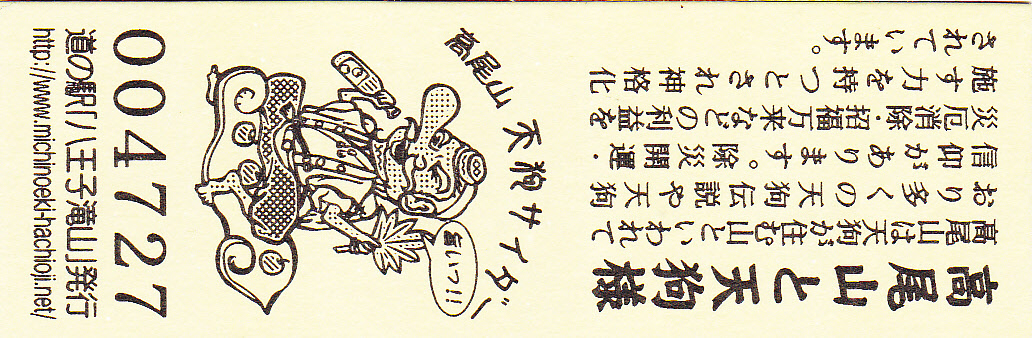 高尾山と天狗様
高尾山は天狗が住む山といわれて
おり多くの天狗伝説や天狗
信仰があります。除災開運・
災厄消除・招福万来などの利益を
施す力を持つとされ神格化
されています。
高尾山 天狗サイダー
旨いっ!!
004727
道の駅「八王子滝山」発行
http://www.michinoeki-hachioji.net/